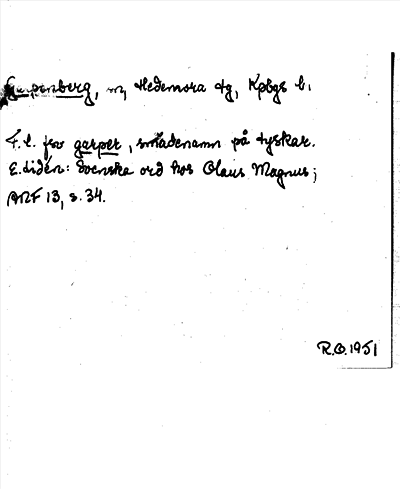 Garpenberg, sn, Hedemora tg, Kpbgs l.
F.l. fsv garper, smädenamn på tyskar.
E. Lidén: Svenska ord hos Olaus Magnus;
ANF 13, s. 34.
R.O. 1951